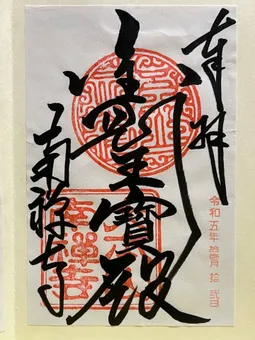 奉拝
令和五年 月 拾 弐日
金剛王寶殿
南禅寺